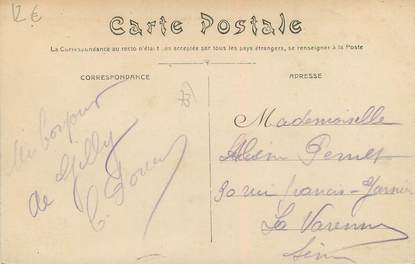 12 €
Carte Postale
La Correspondance au recto n'est pas acceptée par tous les pays étrangers, se renseigner à la Poste
CORRESPONDANCE
ADRESSE
Un bonjour
de Gilly
Mademoiselle
Perret
30 rue Francis-Garnier
La Varenne
Seine